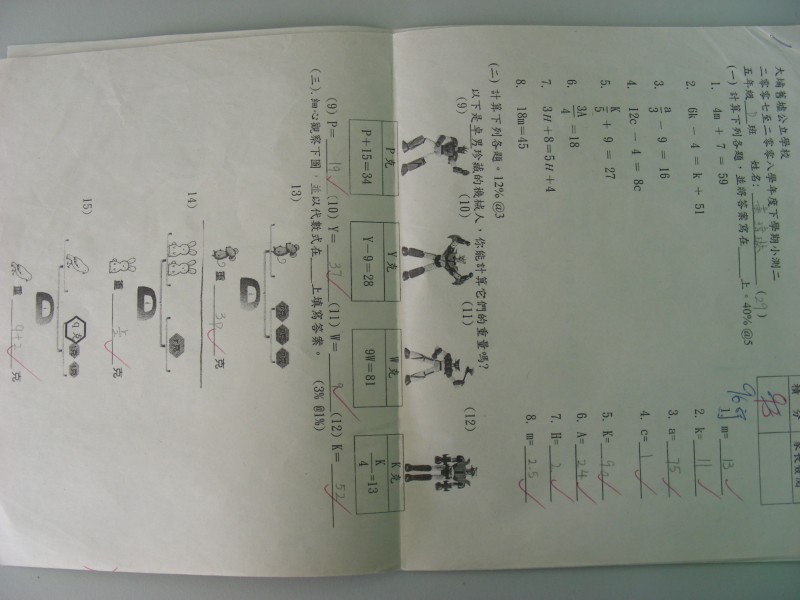 大埔舊墟公立學校
二零零七至二零零八學年度下學期小測二
五年級 班 姓名: (29)
積分
93
96分
(一) 計算下列各題，並將答案寫在____上。40% @5
1. 4m + 7 = 59
1. m= 13
2. 6k - 4 = k + 51
2. k= 11
3. a/3 - 9 = 16
3. a= 75
4. 12c - 4 = 8c
4. c= 1
5. K/5 + 9 = 27
5. K= 90
6. 3A/4 = 18
6. A= 24
7. 3H + 8 = 5H + 4
7. H= 2
8. 18m = 45
8. m= 2.5
(二) 計算下列各題。12% @3
以下是卓男珍藏的機械人，你能計算它們的重量嗎?
(9) (10) (11) (12)
P克 Y克 W克 K克
P+15=34 Y-9=28 9W=81 K/4=13
(9) P= 19 (10) Y= 37 (11) W= 9 (12) K= 52
(三). 細心觀察下圖，並以代數式在____上填寫答案。 (3% @1%)
13)
重 3p 克
14)
重 克
15)
9克
重 9+z 克